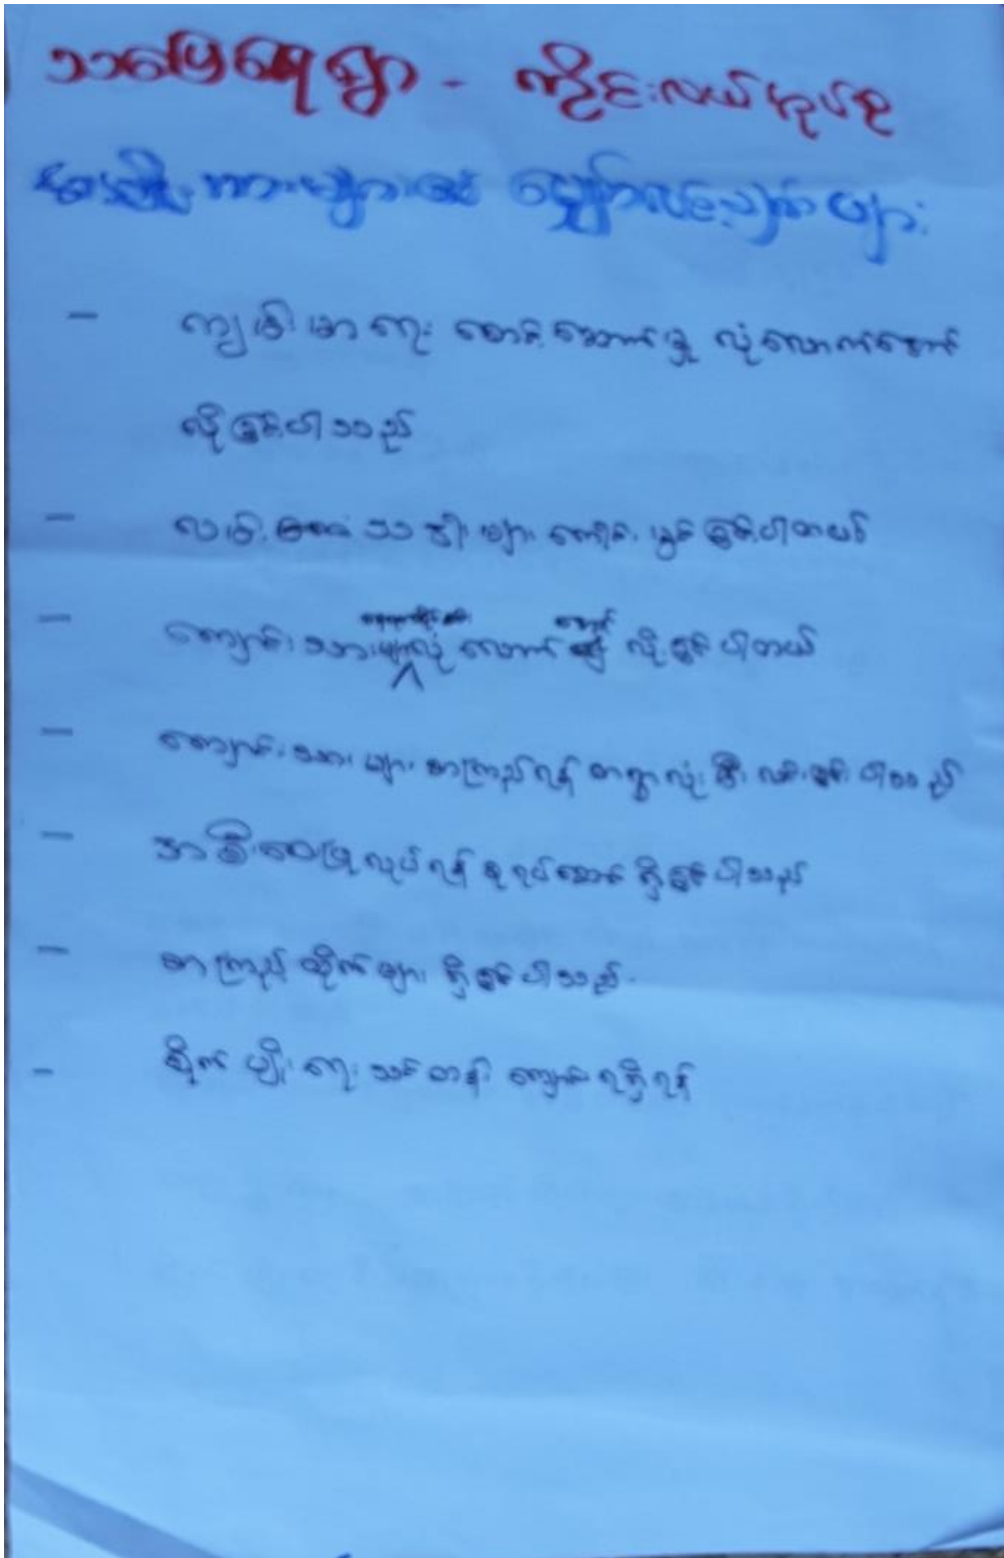 သပြေရေရွာ - ကိုင်းလယ်အုပ်စု
အမျိုးသားများ၏ မျှော်လင့်ချက်များ
- ကျန်းမာရေး စောင့်ရှောက်မှု လုံလောက်အောက်
လိုချင်ပါသည်
- လမ်း တံတား များ ကောင်းမွန်ချင်ပါတယ်
- ကျောင်းသားများလုံလောက်အောင် လိုချင်ပါတယ်
- ကျောင်းသားများ စာကြည့်ရန် တရွာလုံးမီးလင်းချင်ပါသည်
- အစည်းအဝေးပြုလုပ်ရန် စုရပ်ဆောင် ရှိချင်ပါသည်
- စာကြည့်တိုက်များ ရှိချင်ပါသည်
- စိုက်ပျိုးရေး သင်တန်းကျောင်း ရရှိရန်